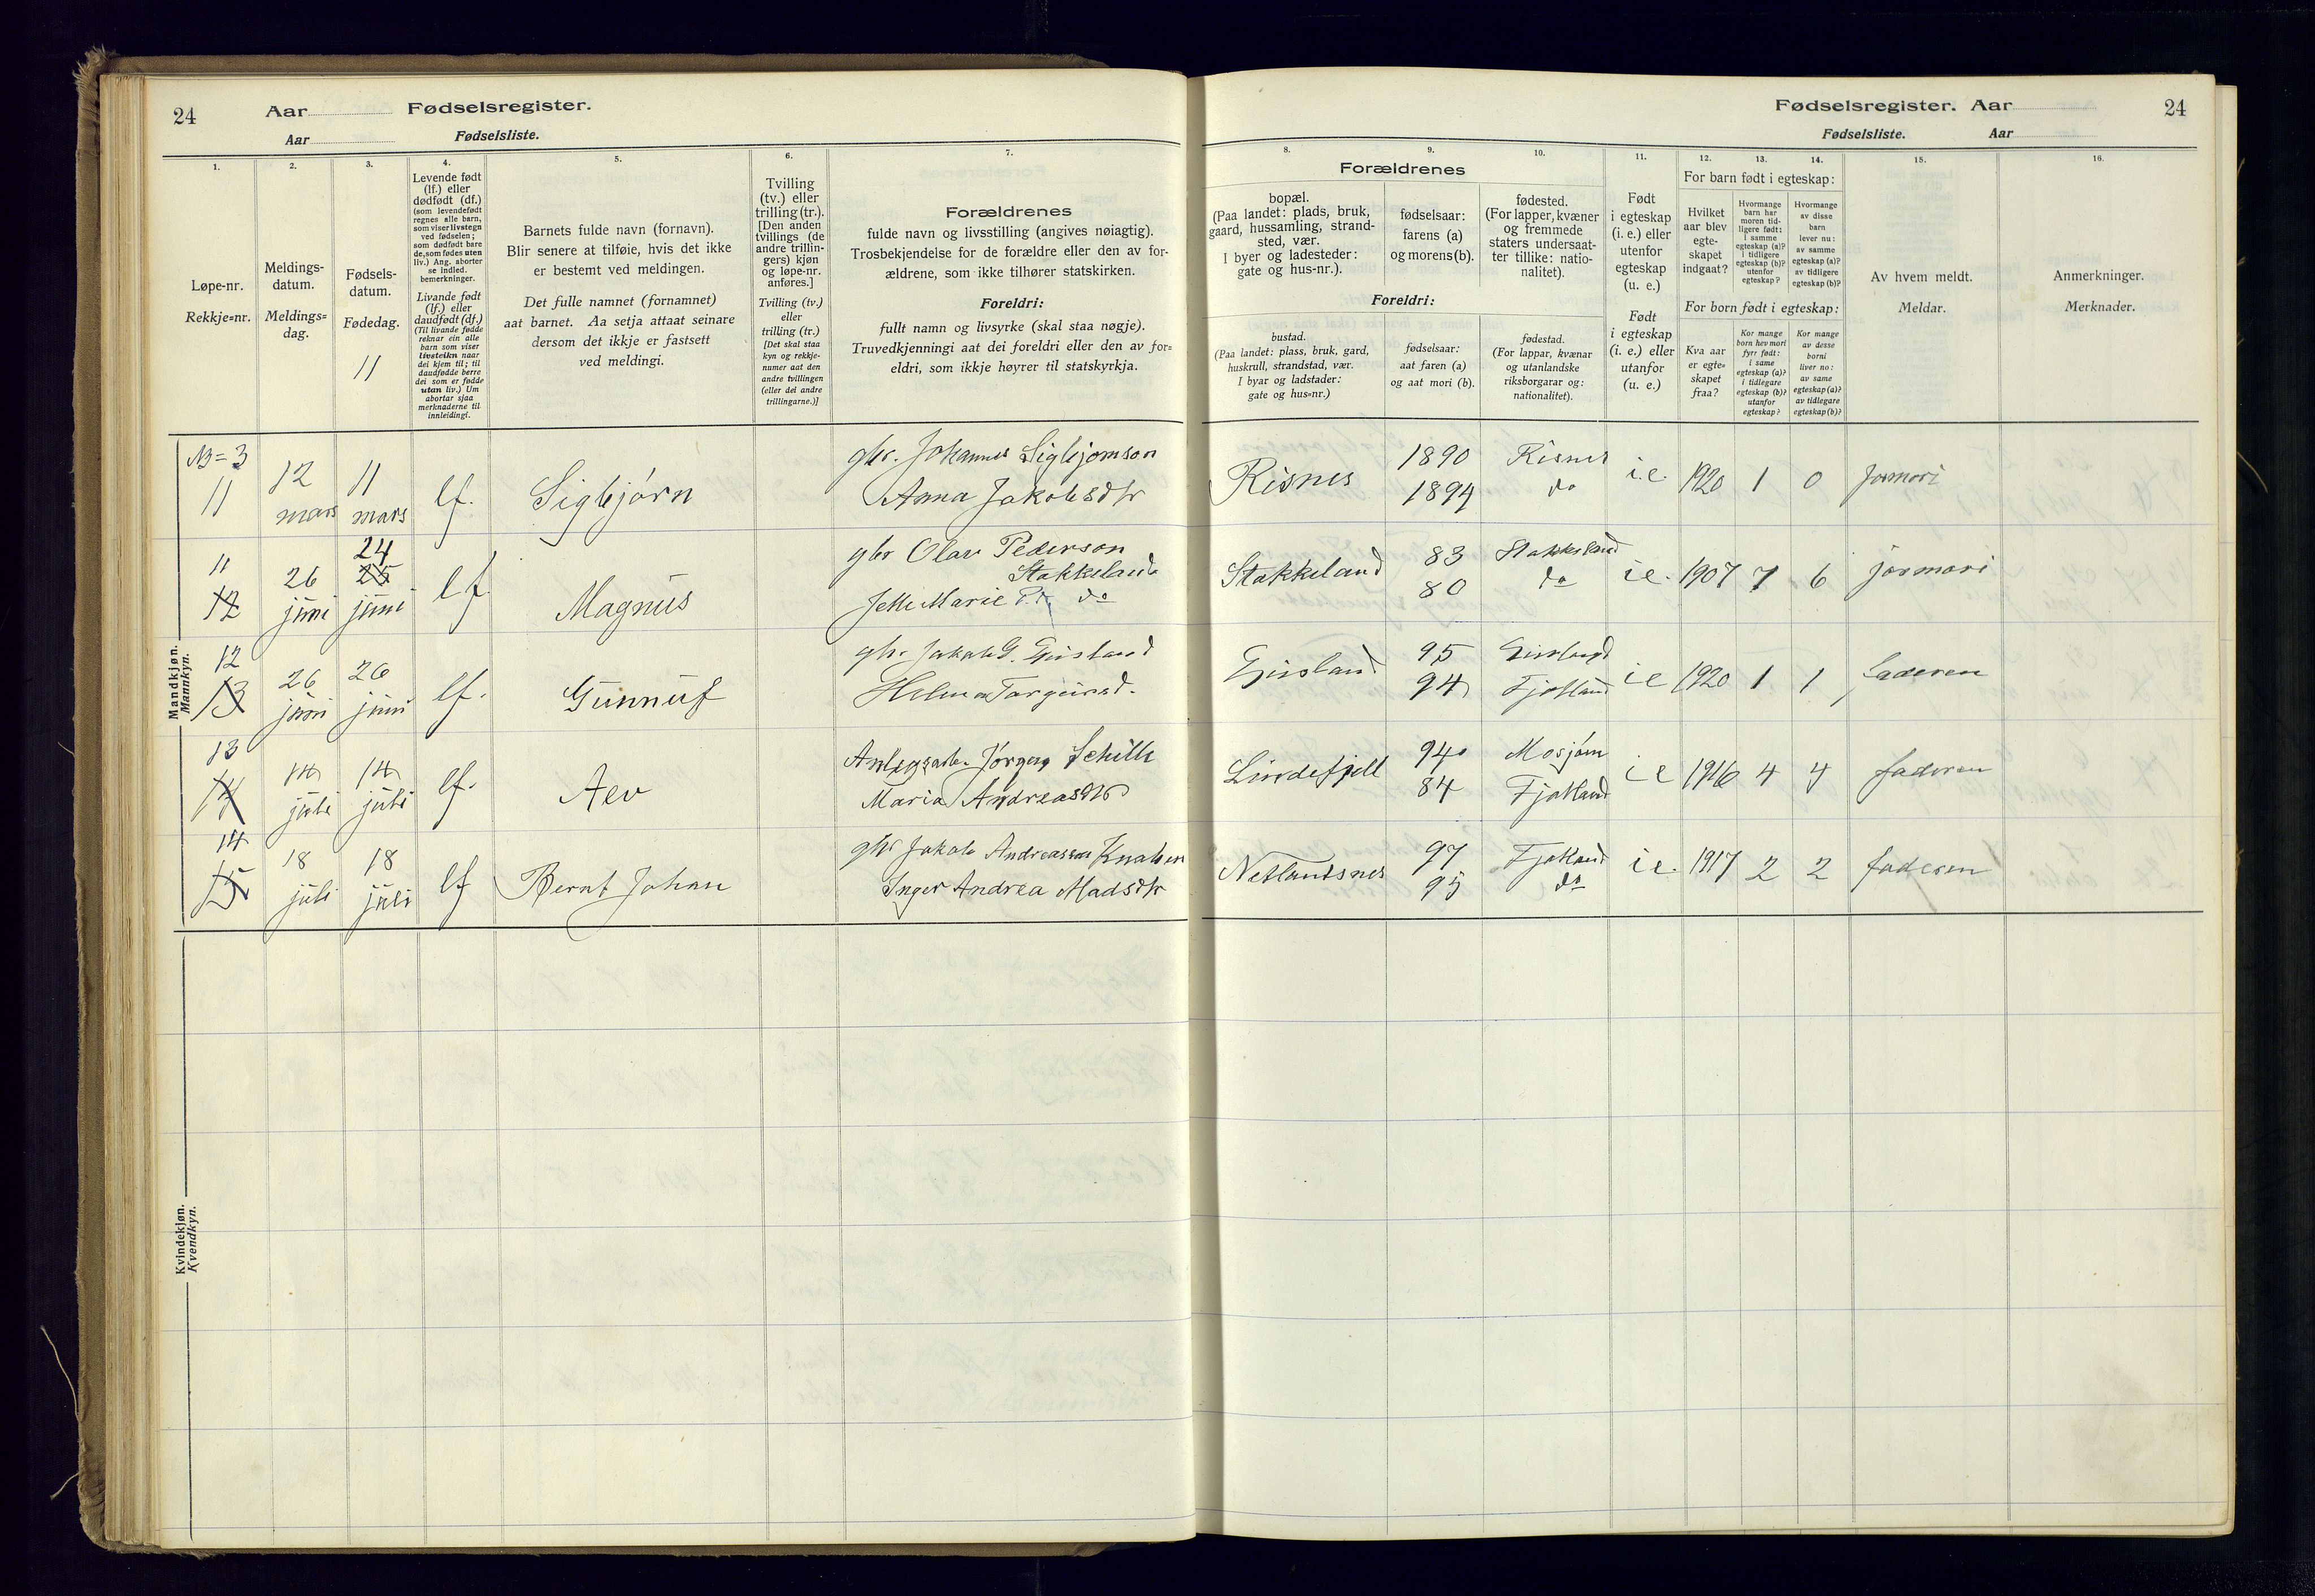 24 Aar Fødselsregister.
Aar Fødselsliste.
1.
2.
3.
4.
5.
6.
7.
Løpe-nr.
Rekkje=nr.
Meldings-
datum.
Meldings=
dag.
Fødsels-
datum.
Fødedag.
11
Levende født
(lf.) eller
dødfødt (df.)
(som levendefødt
regnes alle barn,
som viser livstegn
ved fødselen;
som dødfødt bare
de, som fødes uten
liv.) Ang. aborter
se indled.
bemerkninger.
Livande født
(lf.) eller
daudfødt (df.)
(Til livande fødde
reknar ein alle
barn som viser
livsteikn naar
dei kjem til; til
daudfødde berre
dei som er fødde
utan liv.) Um
abortar sjaa
merknaderne til
innleidingi.
Barnets fulde navn (fornavn).
Blir senere at tilføie, hvis det ikke
er bestemt ved meldingen.
Det fulle namnet (fornamnet)
aat barnet. Aa setja attaat seinare
dersom det ikkje er fastsett
ved meldingi.
Tvilling
(tv.) eller
trilling (tr.).
[Den anden
tvillings (de
andre trillin-
gers) kjøn
og løpe-nr.
anføres.]
Tvilling (tv.)
eller
trilling (tr.)
[Det skal staa
kyn og rekkje-
numer aat den
andre tvillingen
(eller dei andre
trillingarne.)]
Forældrenes
fulde navn og livsstilling (angives nøiagtig).
Trosbekjendelse for de forældre eller den av for-
ældrene, som ikke tilhører statskirken.
Foreldri:
fullt namn og livsyrke (skal staa nøgje).
Truvedkjenningi aat dei foreldri eller den av for=
eldri, som ikkje høyrer til statskyrkja.
Mandkjøn.
Mannkyn.
NB = 3
11
12
mars
11
mars
lf.
Sigbjørn
gbr. Johannes Sigbjørnson
Anna Jakobsdtr
11
12
26
juni
24
25
juni
lf
Magnus
gbr Olav Pederson
Stakkeland
Marie do
12
13
26
juni
26
juni
lf.
Gunnuf
gbr. Jakob G. Eiesland
Helena Torgeirsd.
13
14
14
juli
14
juli
lf.
Jørgen Schille
Maria Andreasdtr
14
15
18
juli
18
juli
lf
Bernt Johan
gbr Jakob Andreassen Knaben
Inger Andrea Madsdtr
Kvindekjøn.
Kvendkyn.
Fødselsregister. Aar 24
Fødselsliste. Aar
8.
9.
10.
11.
12.
13.
14.
15.
16.
Forældrenes
bopæl.
(Paa landet: plads, bruk,
gaard, hussamling, strand-
sted, vær.
I byer og ladesteder:
gate og hus-nr.).
fødselsaar:
farens (a)
og morens (b).
fødested.
(For lapper, kvæner
og fremmede
staters undersaat-
ter tillike: natio-
nalitet).
Foreldri:
bustad.
(Paa landet: plass, bruk, gard,
huskrull, strandstad, vær.
I byar og ladstader:
gate og hus=nr.)
fødselsaar:
aat faren (a)
og aat mori (b).
fødestad.
(For lappar, kvænar
og utanlandske
riksborgarar og:
nationalitet).
Født
i egteskap
(i. e.) eller
utenfor
egteskap
(u. e.)
Født
i egteskap
(i. e.) eller
utanfor
(u. e.)
For barn født i egteskap:
Hvilket
aar blev
egte-
skapet
indgaat?
Hvormange
barn har
moren tid-
ligere født:
i samme
egteskap (a)?
i tidligere
egteskap (b)?
utenfor
egteskap?
Hvormange
av disse
barn
lever nu:
av samme
egteskap (a)?
av tidligere
egteskap (b)?
For born født i egteskap:
Kva aar
er egte=
skapet
fraa?
Kor mange
born hev mori
fyrr født:
i same
egteskap (a)?
i tidlegare
egteskap (b)?
utanfor
egteskap?
Kor mange
av desse
borni
liver no:
av same
egteskap (a)?
av tidlegare
egteskap (b)?
Av hvem meldt.
Meldar.
Anmerkninger.
Merknader.
Risnes
1890
1894
Risnes
do
i.e.
1920
1
0
jormori
Stakkeland
83
80
Stakkeland
do
i e.
1907
7
6
jormori
Eiesland
95
94
Eiesland
Fjotland
i e
1920
1
1
faderen
Lindefjell
94
84
Mosjøen
Fjotland
i e
1916
4
4
faderen
Netlandsnes
97
95
Fjotland
do
i e.
1917
2
2
faderen